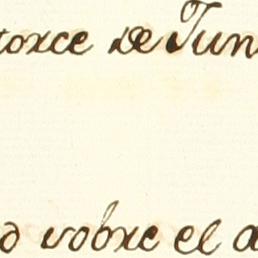 torce de Jun
o sobre el a